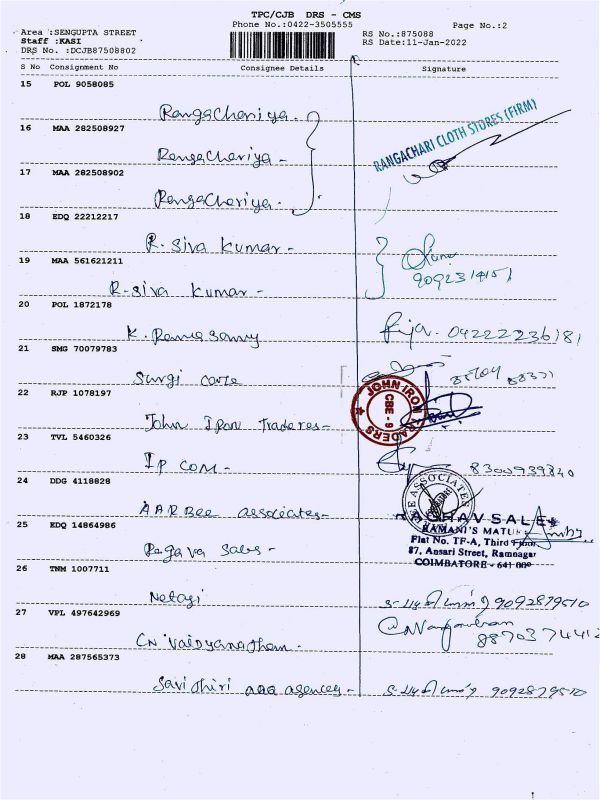 TPC/CJB DRS - CMS
Phone No.:0422-3505555
Page No.:2
Area :SENGUPTA STREET
Staff :KASI
DRS No. :DCJB87508802
RS No.:875088
RS Date:11-Jan-2022
S No Consignment No Consignee Details Signature
15 POL 9058085
Rangachariya.
16 MAA 282508927
Rangachariya -
17 MAA 282508902
Rangachariya.
RANGACHARI CLOTH STORES (FIRM)
18 EDQ 22212217
R. Siva Kumar -
19 MAA 561621211
R. Siva Kumar -
20 POL 1872178
K. Ramasamy
04222236181
21 SMG 70079783
Surgi care
22 RJP 1078197
John Iron Traderes -
JOHN IRON TRADERS
CBE - 9
23 TVL 5460326
IP com -
8300939840
24 DDG 4118828
AARBee associates -
ASSOCIATES
25 EDQ 14864986
Ragava Sales -
RAGHAV SALES
RAMANI'S
Flat No. TF-A, Third Floor
87, Ansari Street, Ramnagar
COIMBATORE - 641 009
26 TNM 1007711
Netagi
9092879510
27 VPL 497642969
CN Vaidyanatham -
28 MAA 287565373
Savithiri aaa agences -
9092879510